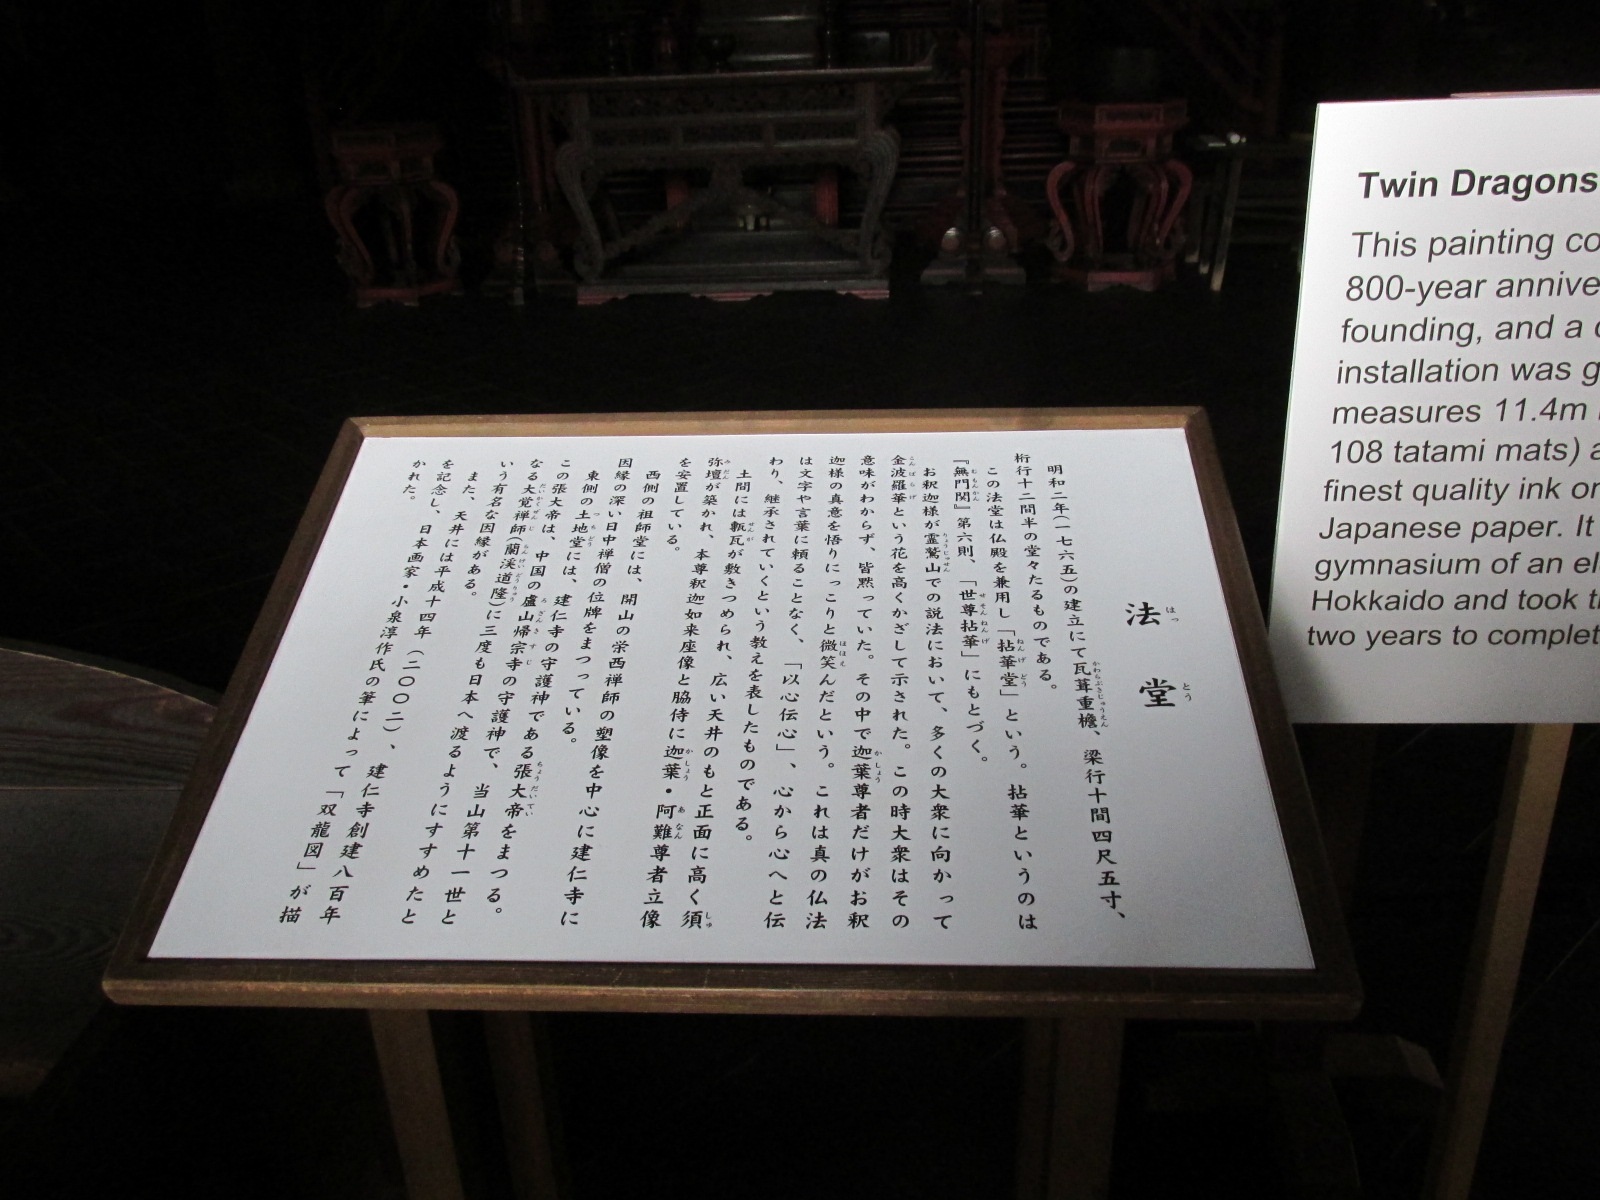 法堂
明和二年(一七六五)の建立にて瓦葺重檐、梁行十間四尺五寸、
桁行十二間半の堂々たるものである。
この法堂は仏殿を兼用し「拈華堂」という。拈華というのは
『無門関』第六則、「世尊拈華」にもとづく。
お釈迦様が霊鷲山での説法において、多くの大衆に向かって
金波羅華という花を高くかざして示された。この時大衆はその
意味がわからず、皆黙っていた。その中で迦葉尊者だけがお釈
迦様の真意を悟りにっこりと微笑んだという。これは真の仏法
は文字や言葉に頼ることなく、「以心伝心」、心から心へと伝
わり、継承されていくという教えを表したものである。
土間には甎瓦が敷きつめられ、広い天井のもと正面に高く須
弥壇が築かれ、本尊釈迦如来座像と脇侍に迦葉・阿難尊者立像
を安置している。
西側の祖師堂には、開山の栄西禅師の塑像を中心に建仁寺に
因縁の深い日中禅僧の位牌をまつっている。
東側の土地堂には、建仁寺の守護神である張大帝をまつる。
この張大帝は、中国の盧山帰宗寺の守護神で、当山第十一世と
なる大覚禅師(蘭渓道隆)に三度も日本へ渡るようにすすめたと
いう有名な因縁がある。
また、天井には平成十四年(二〇〇二)、建仁寺創建八百年
を記念し、日本画家・小泉淳作氏の筆によって「双龍図」が描
かれた。
Twin Dragons
This painting co
800-year annive
founding, and a
installation was g
measures 11.4m
108 tatami mats) a
finest quality ink on
Japanese paper. It
gymnasium of an el
Hokkaido and took t
two years to complet